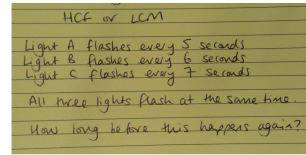 HCF or LCM
Light A flashes every 5 seconds
Light B flashes every 6 seconds
Light C flashes every 7 seconds
All three lights flash at the same time.
How long before this happens again?